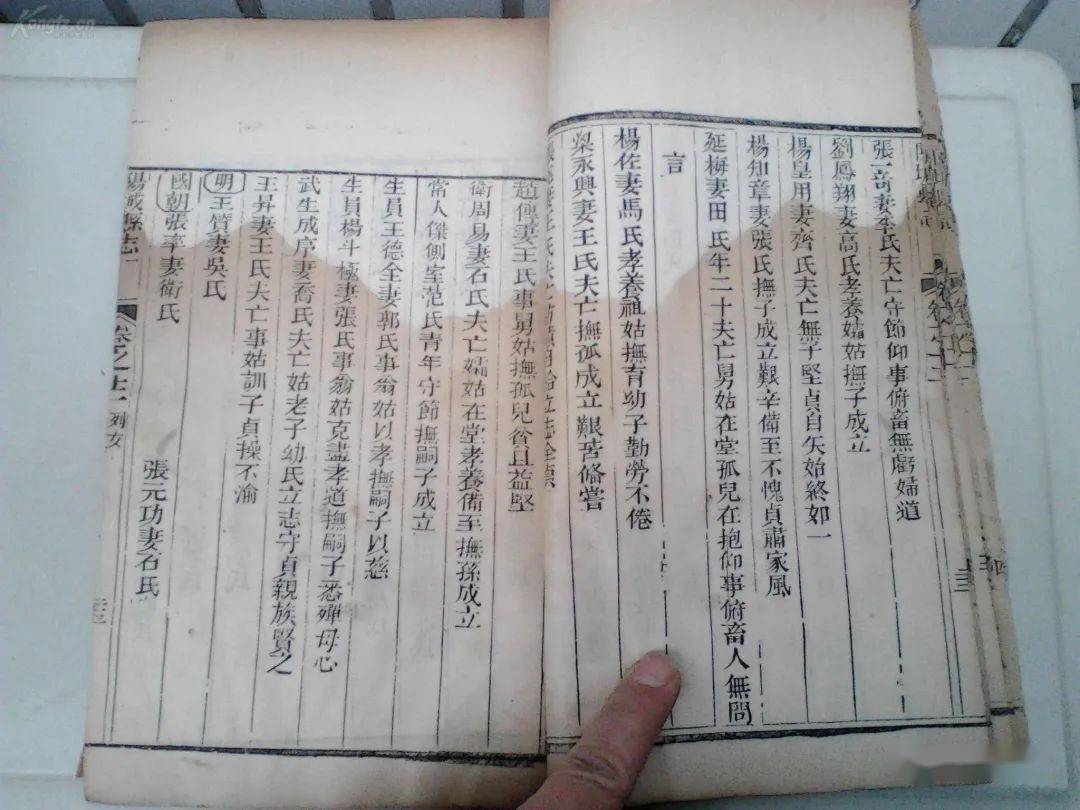 張一奇妻李氏夫亡守節仰事俯畜無虧婦道
劉鳳翔妻高氏孝養孀姑撫子成立
楊皇用妻齊氏夫亡無子堅貞自矢始終如一
楊知章妻張氏撫子成立艱辛備至不愧貞肅家風
延梅妻田氏年二十夫亡舅姑在堂孤兒在抱仰事俯畜人無間
言
楊佐妻馬氏孝養祖姑撫育幼子勤勞不倦
梁永興妻王氏夫亡撫孤成立艱苦備嘗
趙傳妻王氏事舅姑撫孤兒貧且益堅
衛周易妻石氏夫亡孀姑在堂孝養備至撫孫成立
常人傑側室范氏青年守節撫嗣子成立
生員王德全妻郭氏事翁姑以孝撫嗣子以慈
生員楊斗極妻張氏事翁姑克盡孝道撫嗣子悉殫母心
武生成序妻喬氏夫亡姑老子幼氏立志守貞親族賢之
王昇妻王氏夫亡事姑訓子貞操不渝
明王質妻吳氏
國朝張率妻衛氏 張元功妻石氏
陽城縣志 卷之十一 列女 三三
Kongfz.cn